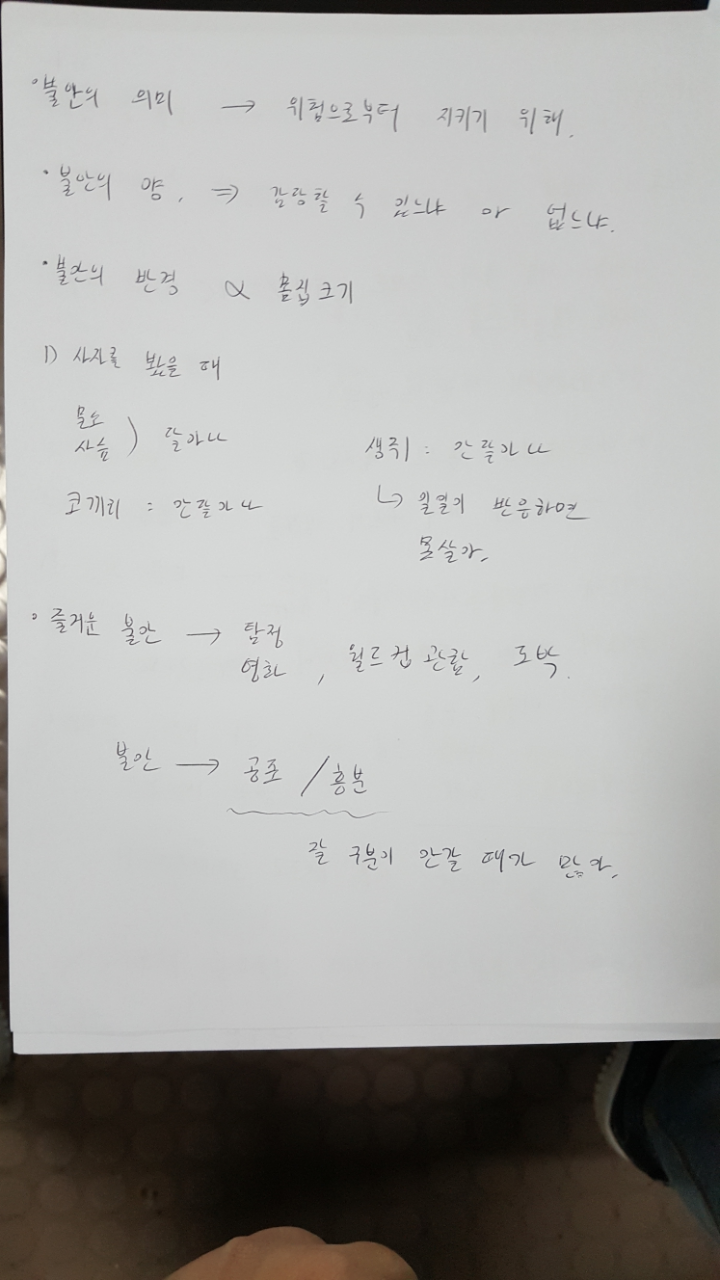 · 불안의 의미 → 위험으로부터 지키기 위해.
· 불안의 양. ⇒ 감당할 수 있느냐 아 없느냐.
· 불안의 반경 ∝ 몸집크기
1) 사자를 봤을 때
물소
사슴 ) 달아나
코끼리 : 안달아나
생쥐 : 안달아나
↳ 일일이 반응하면
못살아.
∘ 즐거운 불안 → 탐정
영화 , 월드컵 관람, 도박.
불안 → 공포 / 흥분
잘 구분이 안갈 때가 많아.